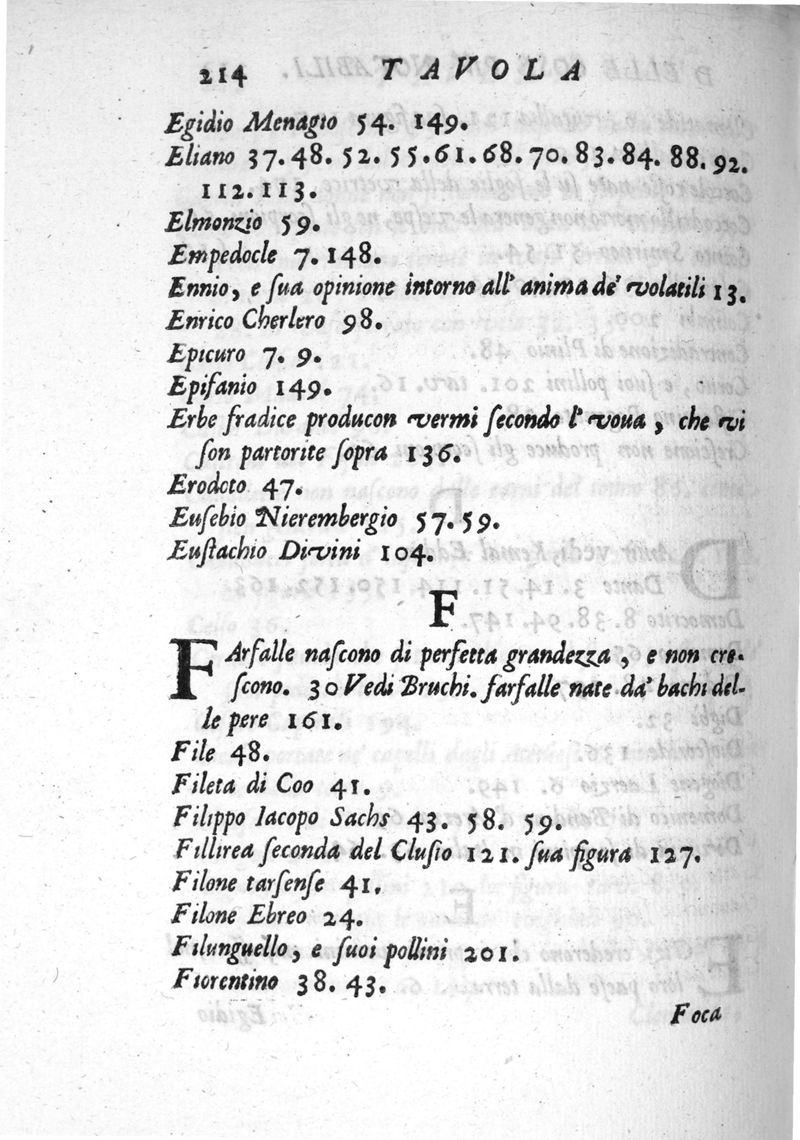 214 TAVOLA
Egidio Menagio 54. 149.
Eliano 37. 48. 52. 55. 61. 68. 70. 83. 84. 88. 92.
112. 113.
Elmonzio 59.
Empedocle 7. 148.
Ennio, e ſua opinione intorno all' anima de' volatili 13.
Enrico Cherlero 98.
Epicuro 7. 9.
Epifanio 149.
Erbe fradice producon vermi ſecondo l' voua, che vi
ſon partorite ſopra 136.
Erodoto 47.
Euſebio Nierembergio 57. 59.
Euſtachio Divini 104.
F
FArfalle naſcono di perfetta grandezza, e non cre-
ſcono. 30 Vedi Bruchi. farfalle nate da' bachi del-
le pere 161.
File 48.
Fileta di Coo 41.
Filippo Iacopo Sachs 43. 58. 59.
Fillirea ſeconda del Cluſio 121. ſua figura 127.
Filone tarſenſe 41.
Filone Ebreo 24.
Filunguello, e ſuoi pollini 201.
Fiorentino 38. 43.
Foca